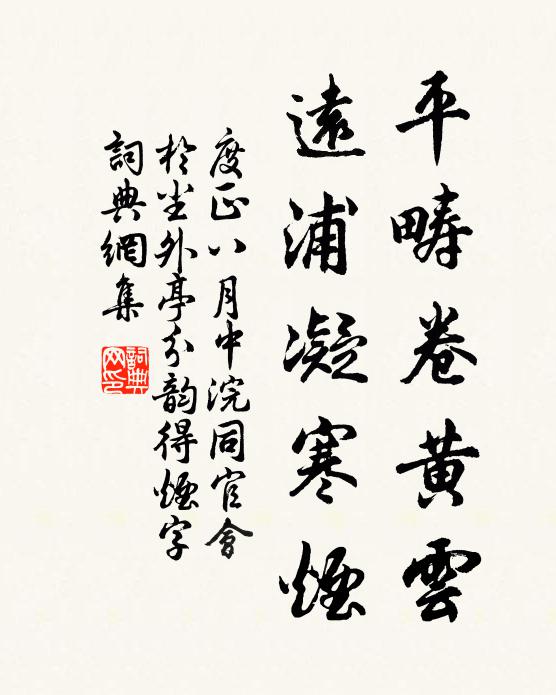 平疇卷黃雲
遠浦凝寒煙
度正八月中浣同官會
於尘外亭分韵得煙字
詞典網集
詞典
网印